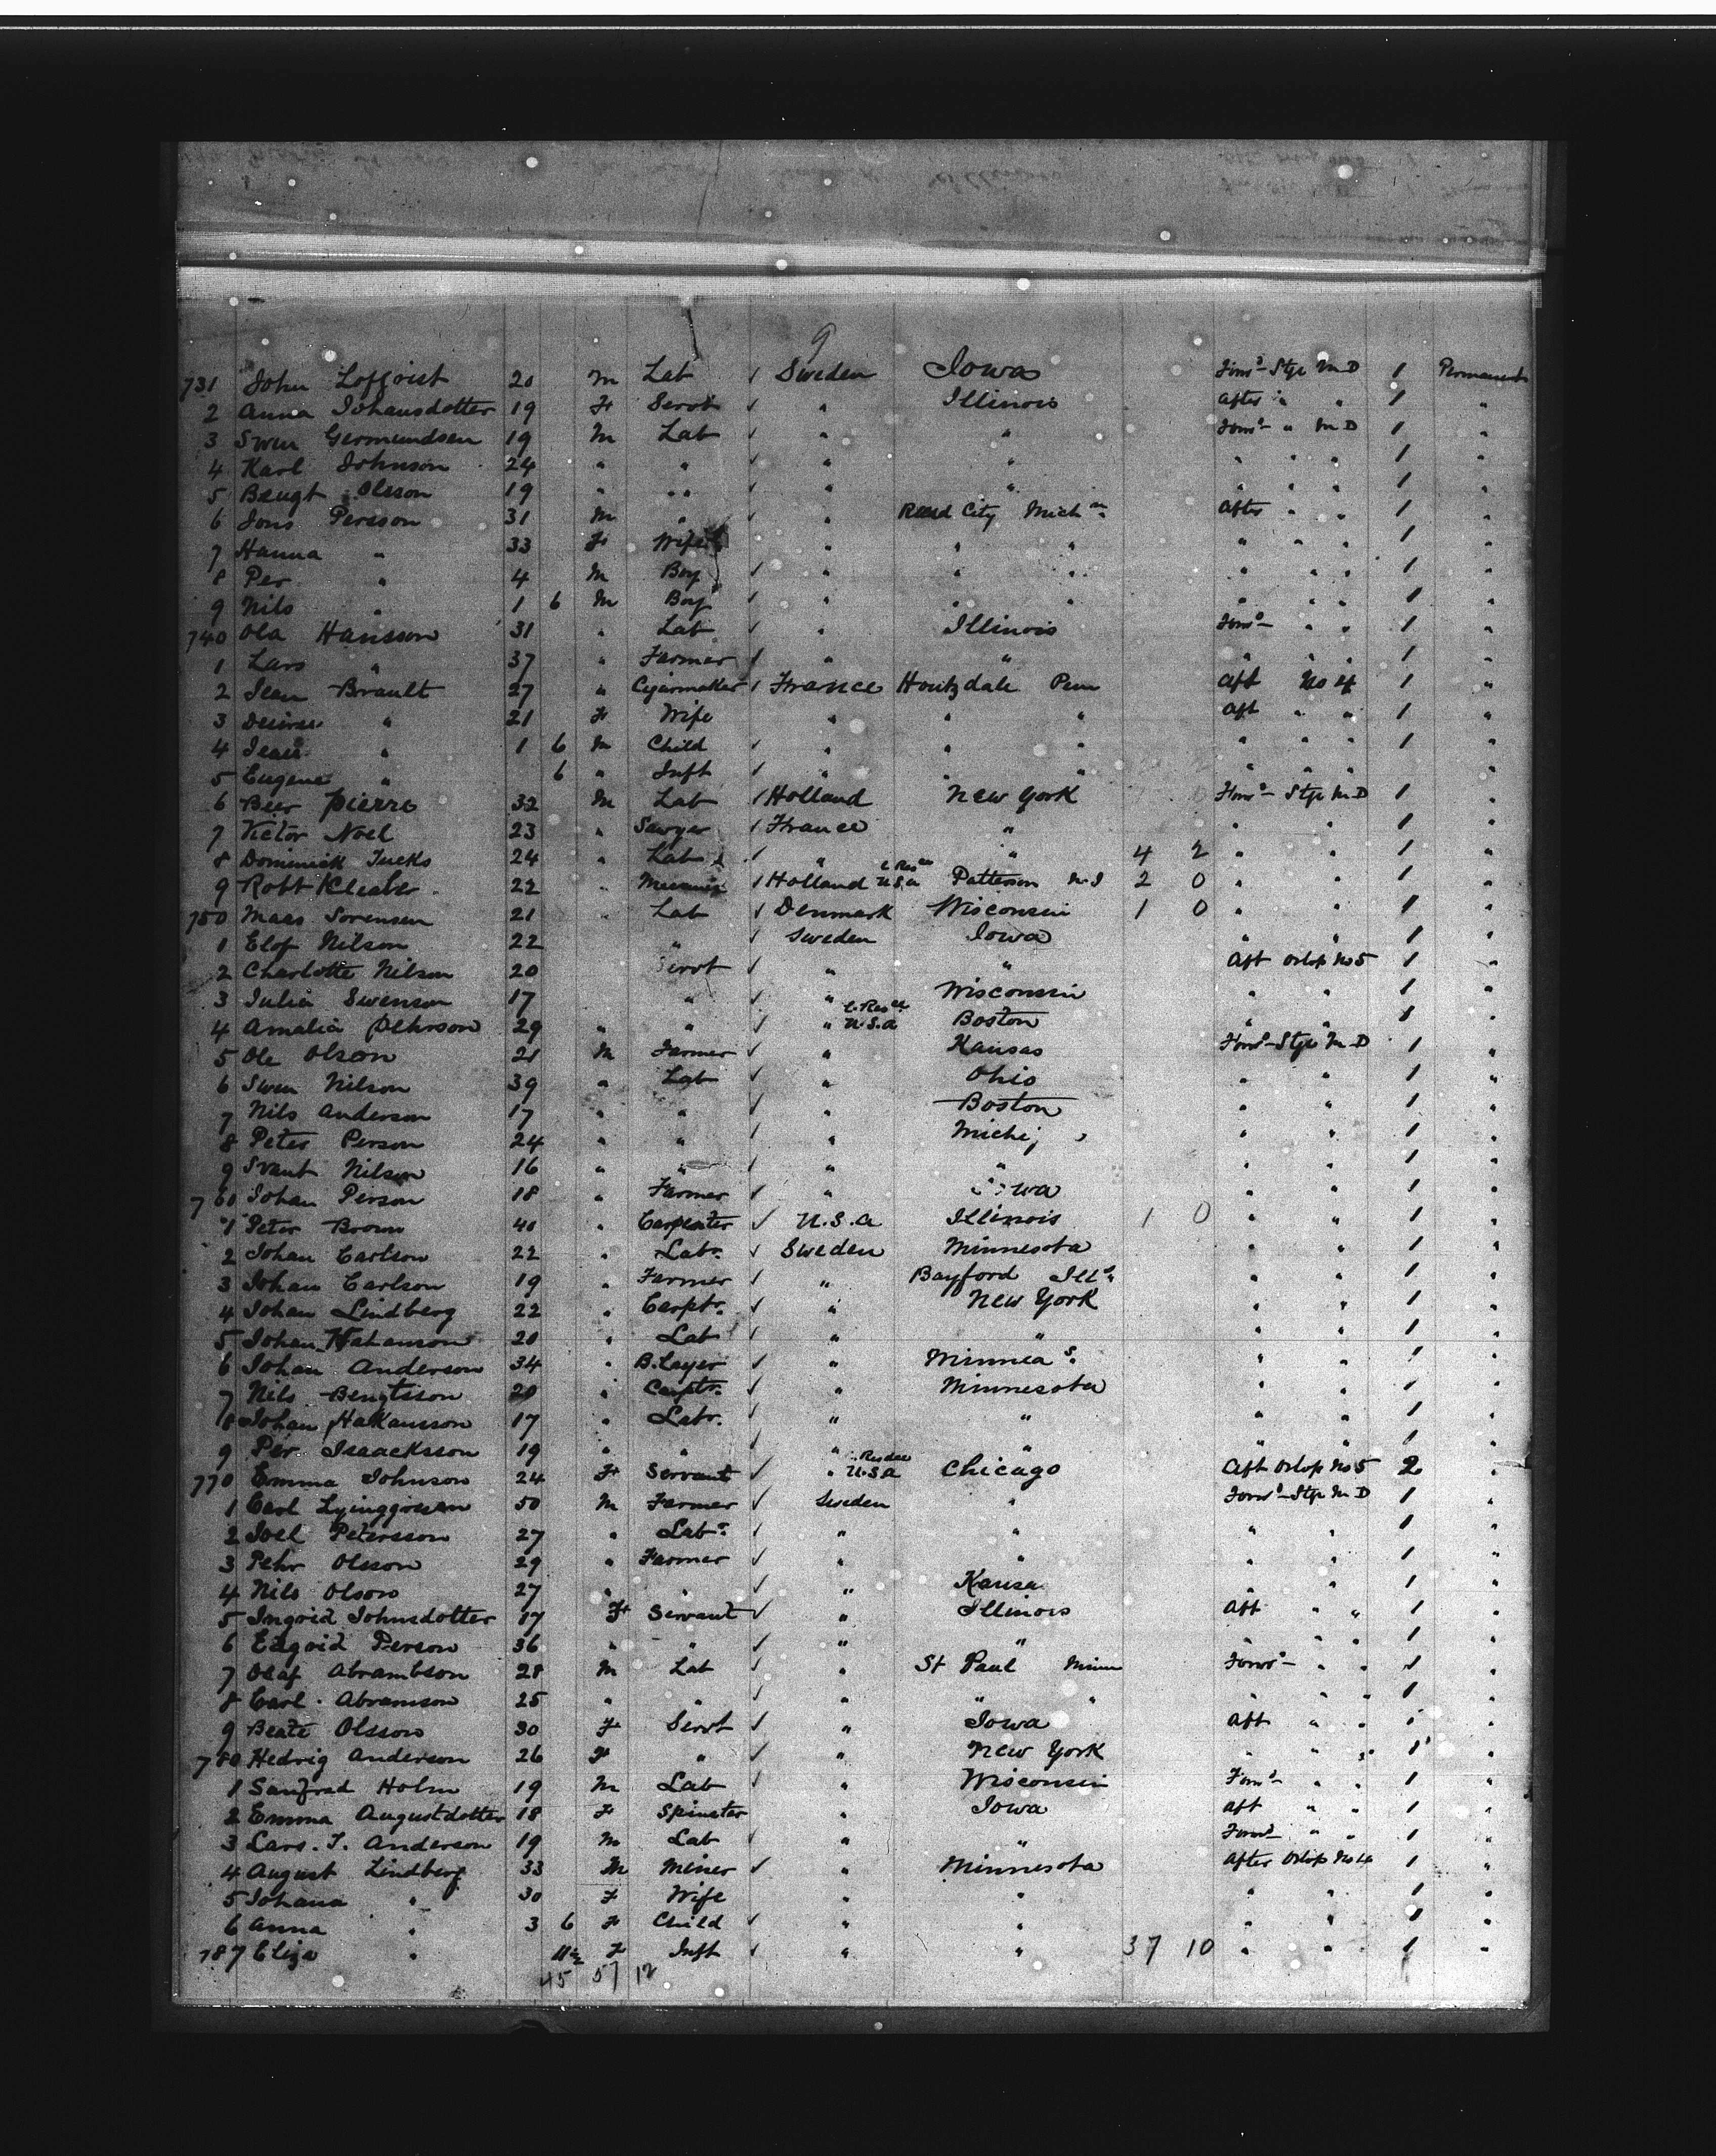 9
731 John Lofqvist 20 m Lab ✓ Sweden Iowa Forwd Stge M D 1 Permanent
2 Anna Johansdotter 19 F Servt ✓ " Illinois After " " 1 "
3 Swen Germundsen 19 m Lab ✓ " " Forwd " M D 1 "
4 Karl Johnson 24 " " ✓ " " " " " 1 "
5 Bengt Olsson 19 " " ✓ " " " " " 1 "
6 Jons Persson 31 m " ✓ " Reed City Michn After " " 1 "
7 Hanna " 33 F Wife " " " " " " 1 "
8 Per " 4 m Boy ✓ " " " " " " 1 "
9 Nils " 1 6 m Boy ✓ " " " " " " 1 "
740 Ola Hansson 31 " Lab ✓ " Illinois Forwd " " 1 "
1 Lars " 37 " Farmer ✓ " " " " " 1 "
2 Jean Brault 27 " Cigarmaker ✓ France Houtzdale Penn Aft No 4 1 "
3 " 21 F Wife " " " Aft " " 1 "
4 Jean " 1 6 m Child ✓ " " " " " " 1 "
5 Eugene " 6 " Inft ✓ " " " " "
6 Beer Pierre 32 m Lab ✓ Holland New York Forwd Stge M D 1 "
7 Victor Noel 23 " Sawyer ✓ France " " " 1 "
8 Dominick Tucks 24 " Lab ✓ " " 4 2 " " 1 "
9 Robt 22 " ✓ Holland U.S.a Patterson N.J 2 0 " " 1 "
750 Maas Sorensen 21 " Lab ✓ Denmark Wisconsin 1 0 " " 1 "
1 Elof Nilson 22 " ✓ Sweden Iowa " " 1 "
2 Charlotte Nilson 20 Servt ✓ " " Aft Orlop No 5 1 "
3 Julia Swenson 17 " ✓ " Wisconsin " " 1 "
4 Amalia Pehrson 29 " " ✓ " U.S.a Boston " " 1 "
5 Ole Olson 21 m Farmer ✓ " Kansas Forwd Stge M D 1 "
6 Swen Nilson 39 " Lab ✓ " Ohio " " 1 "
7 Nils Anderson 17 " " ✓ " Boston " " 1 "
8 Peter Person 24 " " ✓ " Michig " " 1 "
9 Svant Nilson 16 " " ✓ " " " " 1 "
760 Johan Person 18 " Farmer ✓ " Iowa " " 1 "
1 Peter Brown 40 " Carpenter ✓ U.S.a Illinois 1 0 " " 1 "
2 Johan Carlson 22 " Labr. ✓ Sweden Minnesota " " 1 "
3 Johan Carlson 19 " Farmer ✓ " Bayford Ills. " " 1 "
4 Johan Lindberg 22 " Carptr. ✓ " New York " " 1 "
5 Johan 20 " Lab ✓ " " " " 1 "
6 Johan Anderson 34 " B.Layer ✓ " Minneas. " " 1 "
7 Nils Bengtsson 20 " Carptr. ✓ " Minnesota " " 1 "
8 Johan Hakansson 17 " Labr. ✓ " " " " 1 "
9 Per Isaacksson 19 " " ✓ " " " " 1 "
770 Emma Johnson 24 F Servant ✓ " U.S.a Chicago Aft Orlop No 5 2 "
1 Carl 50 m Farmer ✓ Sweden " Forwd Stge M D 1 "
2 Joel Petersson 27 " Labr. ✓ " " " " 1 "
3 Pehr Olsson 29 " Farmer ✓ " " " " 1 "
4 Nils Olson 27 " " ✓ " Kansa " " 1 "
5 Ingrid Johnsdotter 17 F Servant ✓ " Illinois Aft " " 1 "
6 Person 36 " " ✓ " " " " " 1 "
7 Olaf Abrambson 28 m Lab ✓ " St Paul Minn Forwd " " 1 "
8 Carl Abramson 25 " " ✓ " " " " " " 1 "
9 Beate Olsson 30 F Servt ✓ " Iowa Aft " " 1 "
780 Hedvig Anderson 26 F " ✓ " New York " " " 1 "
1 Sanfred Holm 19 m Lab ✓ " Wisconsin Forwd " " 1 "
2 Emma Augustdotter 18 F Spinster " Iowa Aft " " 1 "
3 Lars. J. Anderson 19 m Lab ✓ " " Forwd " " 1 "
4 August Lindberg 33 m Miner ✓ " Minnesota After Orlop No 4 1 "
5 Johana " 30 F Wife " " " " 1 "
6 Anna " 3 6 F Child ✓ " " " " 1 "
787 Eliza " F Inft ✓ " " 37 10 " " 1 "
45 57 12